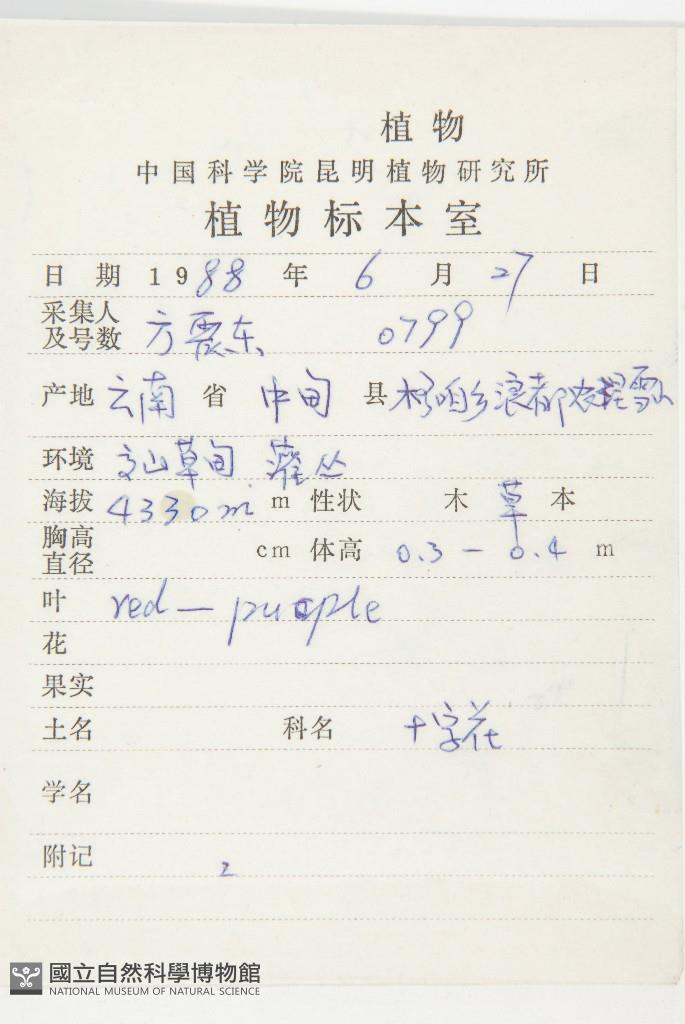 植物
中国科学院昆明植物研究所
植物标本室
日期 1988 年 6 月 27 日
采集人及号数 方震东 0799
产地 云南 省 中甸 县 格咱乡浪都
环境 高山草甸. 灌丛
海拔 4330m m 性状 木 草 本
胸高直径 cm 体高 0.3 — 0.4 m
叶 red — purple
花
果实
土名 科名 十字花
学名
附记 2
國立自然科學博物館
NATIONAL MUSEUM OF NATURAL SCIENCE